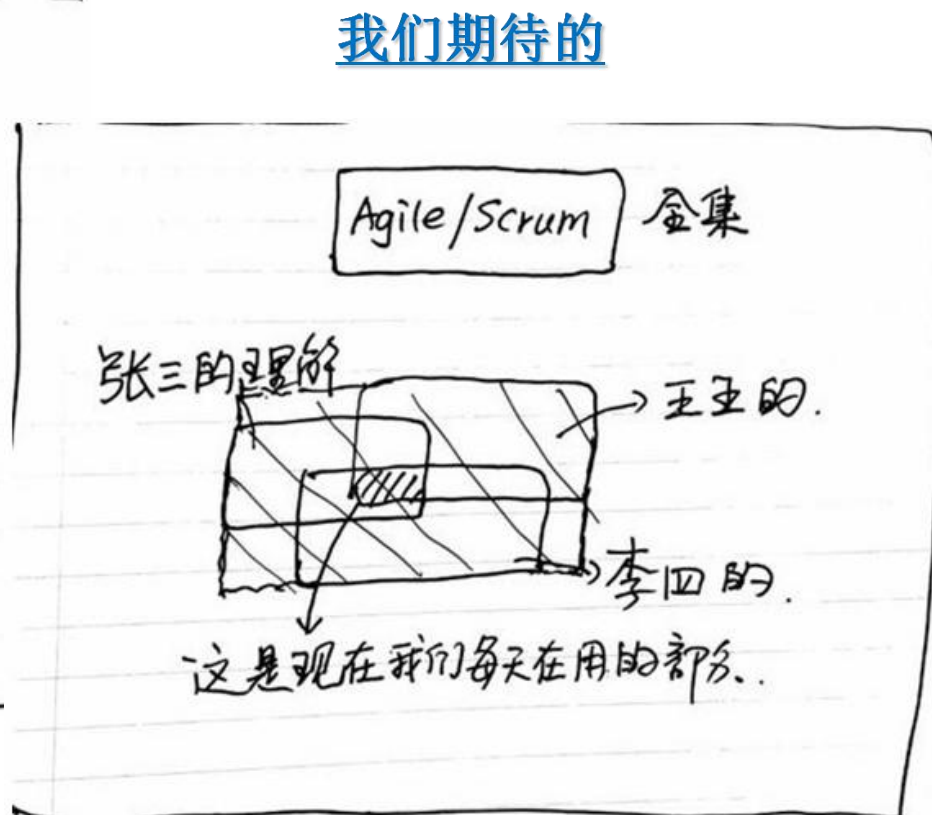 我们期待的
Agile/Scrum 全集
张三的理解
王五的.
李四的.
这是现在我们每天在用的部分..